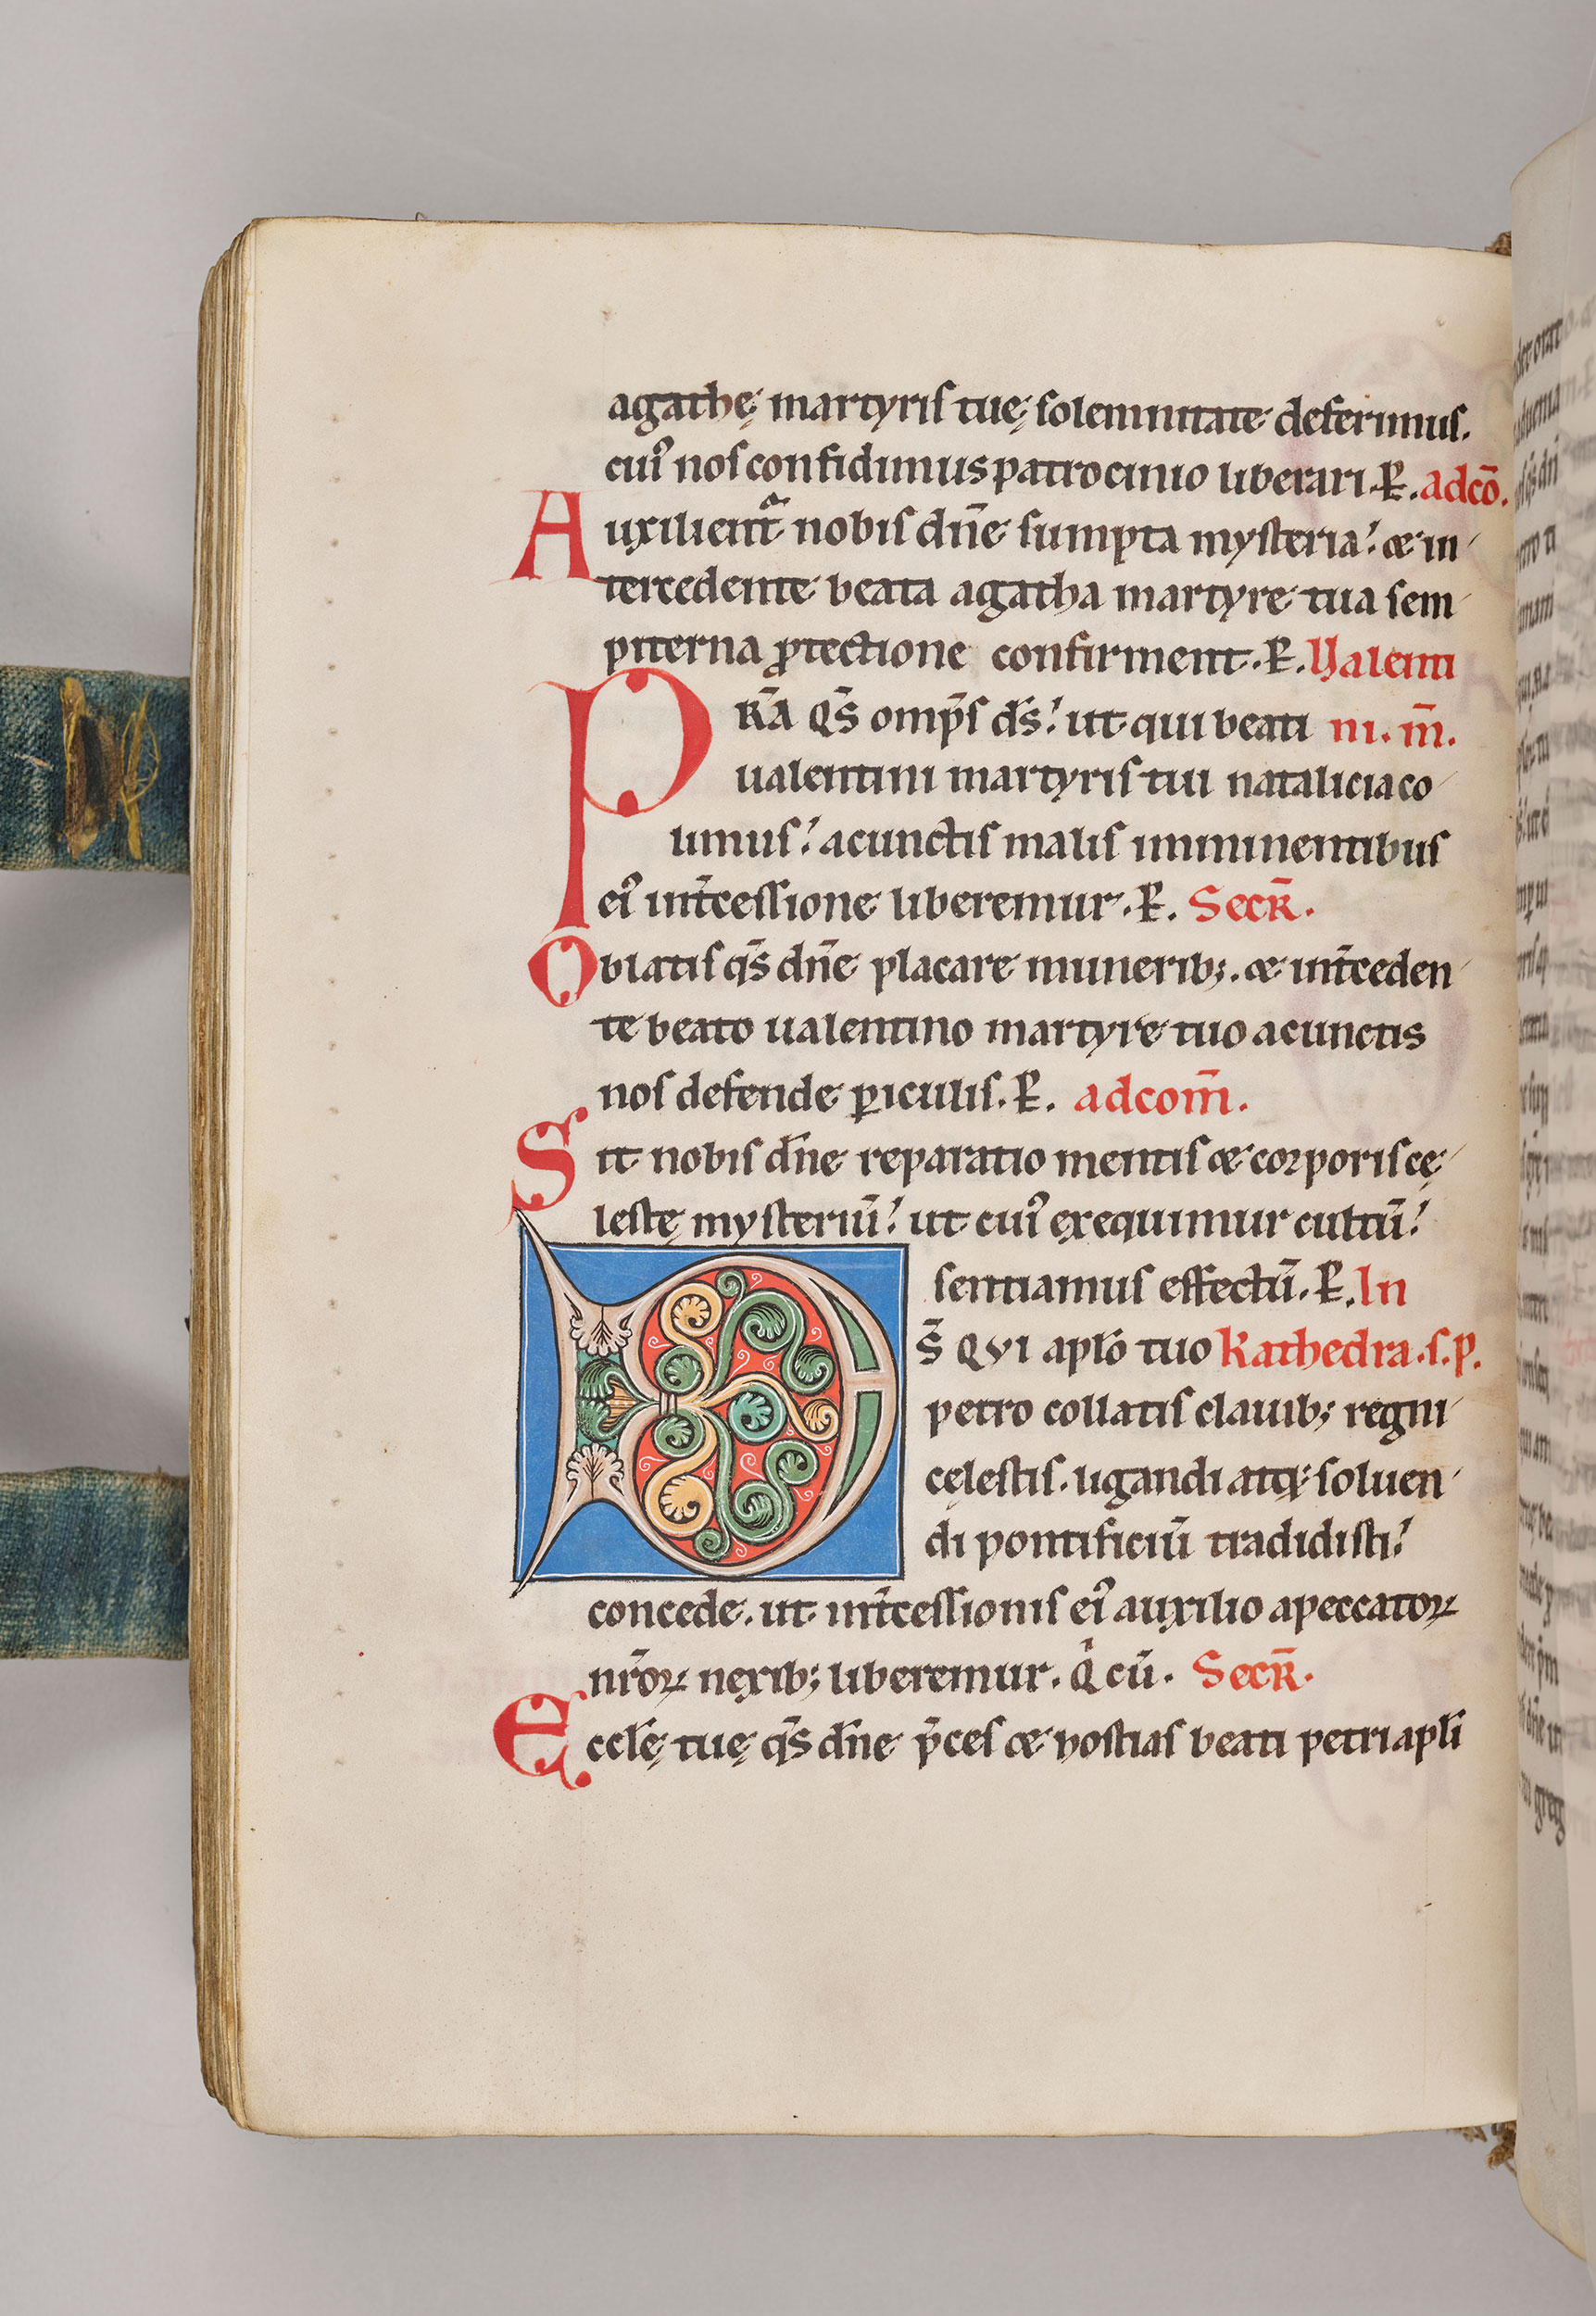 agathę martyris tuę solemnitate deferimus.
cuiꝰ nos confidimus patrocinio liberari. P̱. ad cō.
Auxilient᷑ nobis dn̄e sumpta mysteria? & in
tercedente beata agatha martyre tua sem
piterna ꝓtectione confirment. P̱. Valenti
PRĀ QS̄ omp̄s ds̄? ut qui beati ni. m̄.
ualentini martyris tui natalicia co
limus? a cunctis malis imminentibus
eiꝰ int̄cessione liberemur. P̱. SecR̄.
Oblatis qs̄ dn̄e placare munerib;. & int̄ceden
te beato ualentino martyre tuo a cunctis
nos defende ꝑiculis. P̱. ad com̄.
Sit nobis dn̄e reparatio mentis & corporis cę
lestę mysteriū? ut cuiꝰ exequimur cultū?
sentiamus effectū. P̱. In
DS̄ QVI aplō tuo Kathedra. s. p.
petro collatis clauib; regni
cęlestis. ligandi atq; soluen
di pontificiū tradidisti?
concede. ut int̄cessionis eiꝰ auxilio a peccatoꝝ
nr̄oꝝ nexib; liberemur. Q̇ cū. SecR̄.
Eccłę tuę qs̄ dn̄e p̄ces & hostias beati petri apłi